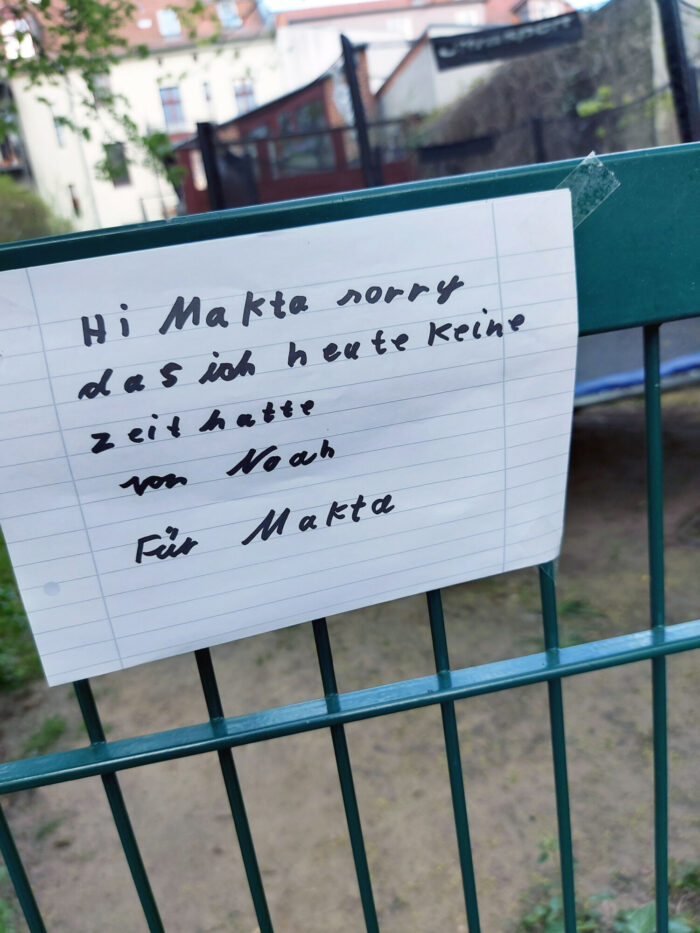 Ultrasport
Hi Makta sorry
das ich heute keine
zeit hatte
von Noah
Für Makta